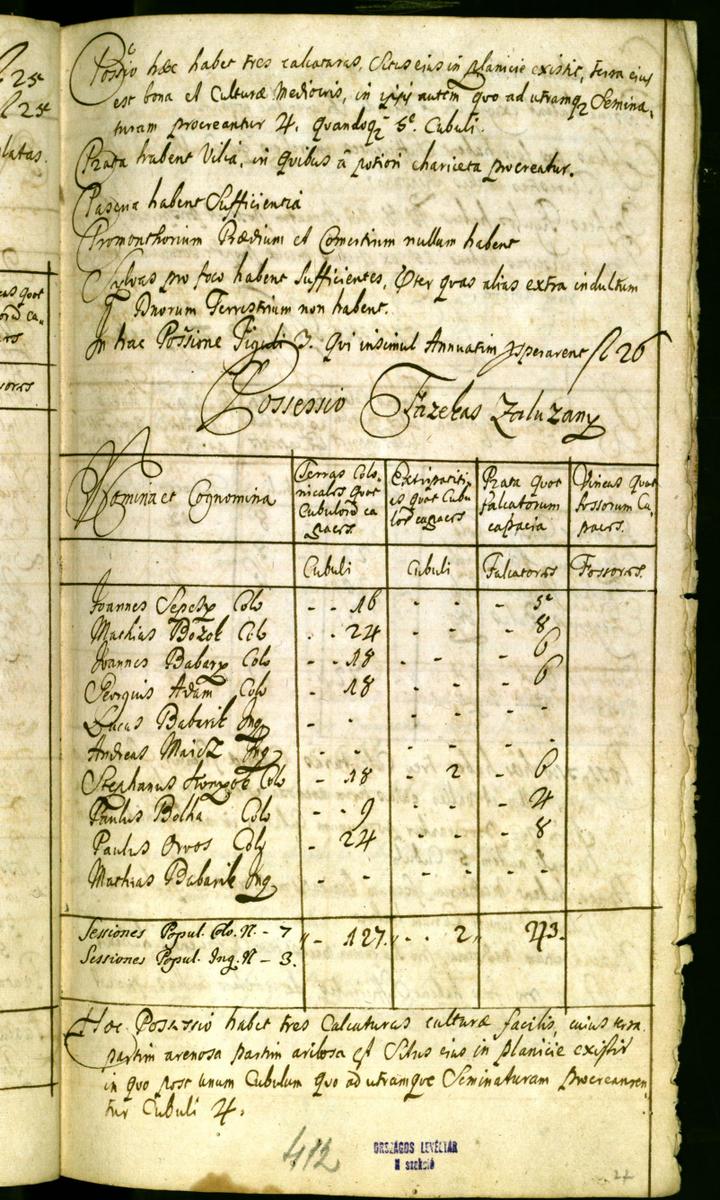 25
25
latas.
Possio hæc habet tres calcaturas, Situs eius in planicie existit, terra eius
est bona et Culturæ Mediocris, in ipsis autem quo ad utramq Semina,
turam procreantur 4. quandoq 5. Cubuli.
Prata habent Vilia, in quibus à potiori chariceta procreatur.
Pascua habent Sufficientia
Promonthorium Prædium et Comertium nullum habent
Sylvas pro foco habent Sufficientes, Pter quas alias extra indultum
Dnorum Terrestrium non habent.
In hac Possione Figuli 3. Qui insimul Annuatim fl 26
Possessio Fazekas Zaluzany
Nomina et Cognomina
Terras Colo,
nicales quot
Cubulorū ca
paces.
Extirpatiti,
as quot Cubu
lorū capaces
Prata quot
falcatorum
capacia
Vineas quot
fossorum Ca,
paces.
Cubuli Cubuli Falcatores Fossores.
Joannes Sepesy Colo - - 16 - - - 5
Mathias Bozok Colo - - 24 - - - 8
Joannes Babary Colo - - 18 - - - 6
Georgius Adam Colo - 18 - - - 6
Lucas Babarik Inq - - - - - -
Andreas Maicz Inq - - - - - -
Stephanus Colo - 18 - 2 - 6
Paulus Bolha Colo - - 9 - - - 4
Paulus Orvos Colo - 24 - - - 8
Mathias Babarik Inq - - - - - -
Sessiones Popul. Colo. N. - 7 - 127. - - 2 43.
Sessiones Popul. Inq. N - 3.
Hoc Possessio habet tres Calcaturas culturæ facilis, cuius terra
partim arenosa partim et Situs eius in planicie existit
in quo post unum Cubulum quo ad utramque Seminaturam procreanren
tur Cubuli 4.
412
ORSZÁGOS LEVÉLTÁR
N szekció